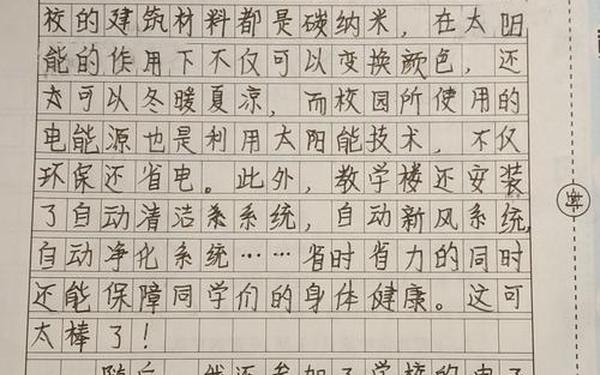 校的建筑材料都是碳纳米，在太阳
能的作用下不仅可以变换颜色，还
可以冬暖夏凉，而校园所使用的
电能源也是利用太阳能技术，不仅
环保还省电。此外，教学楼还安装
了自动清洁系系统，自动新风系统，
自动净化系统……省时省力的同时
还能保障同学们的身体健康。这可
太棒了！
随后，我还参加了学校的电子